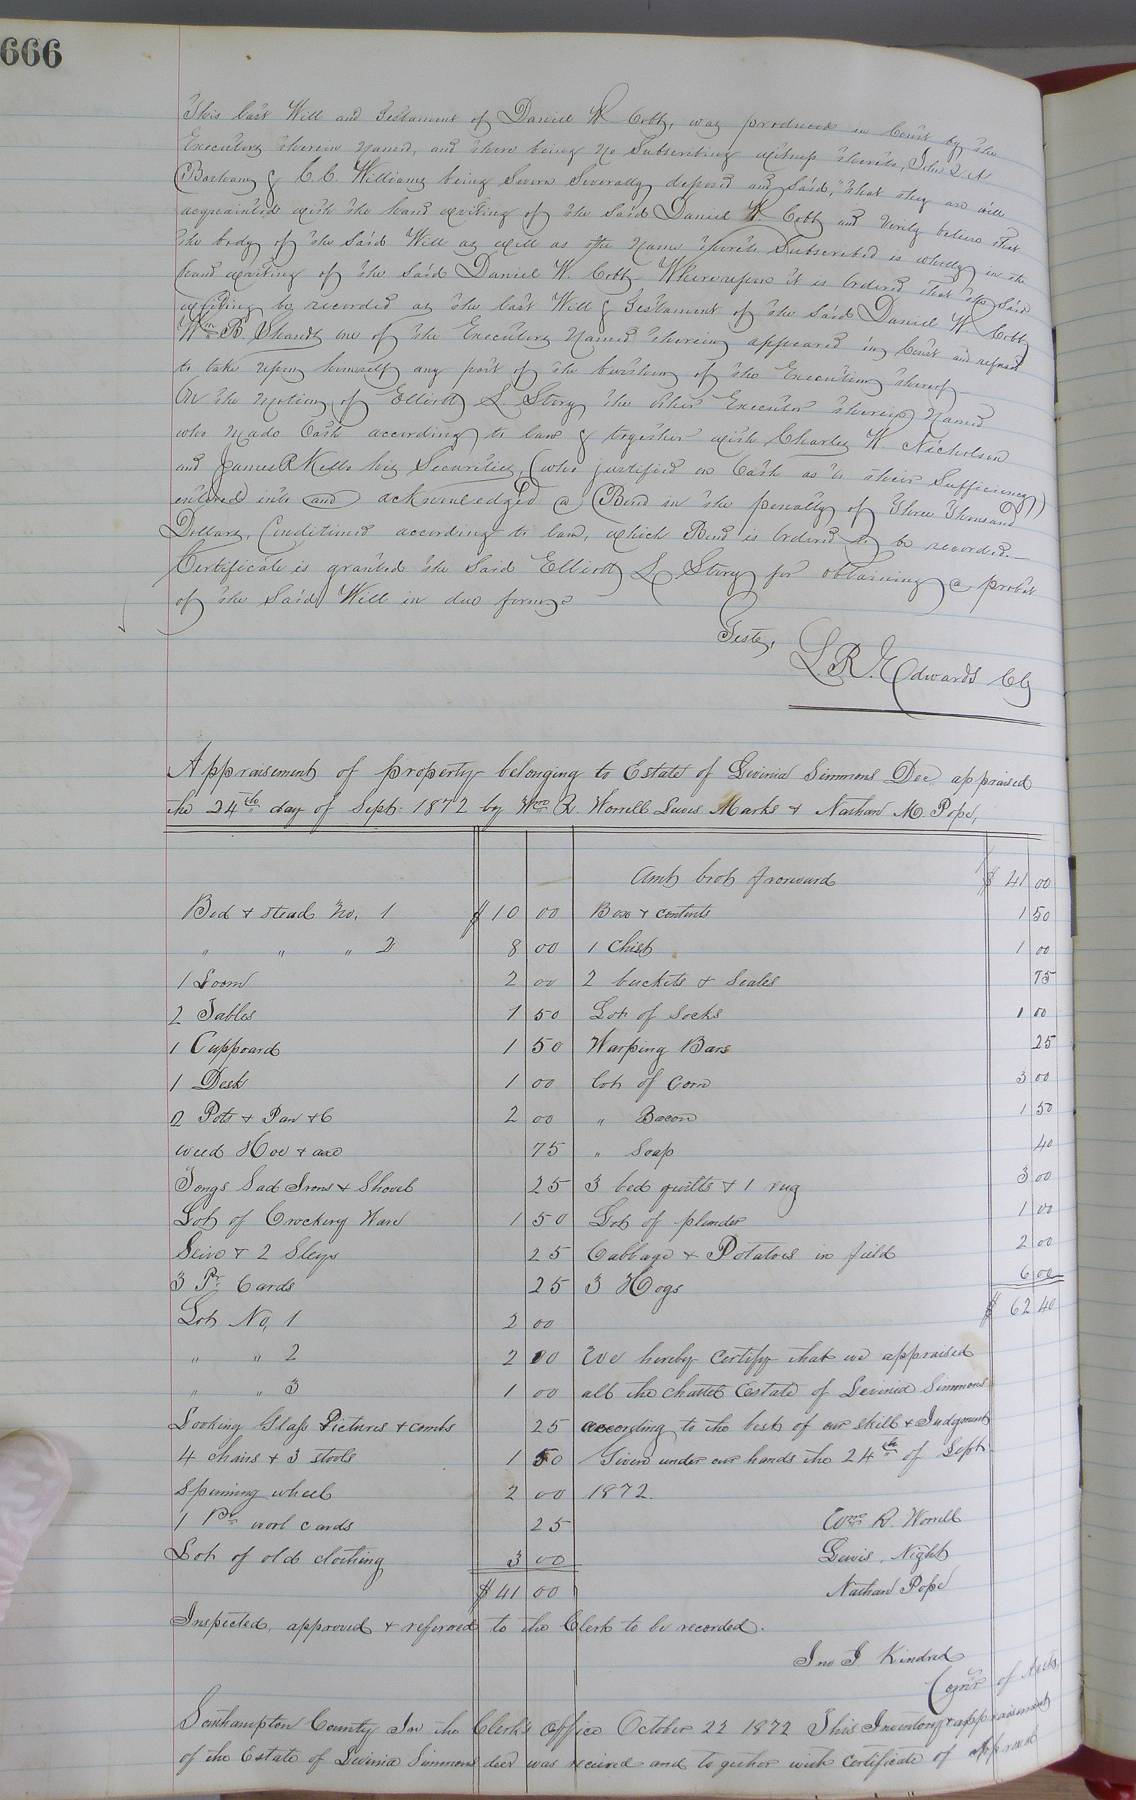 666
This last Will and Testament of Daniel W Cobb, was produced in Court by the
Executors therein named, and there being no Subscribing witness thereto,
Barham & C. C. Williams being Sworn Severally deposed and Said, "that they are well
acquainted with the hand writing of the Said Daniel W. Cobb and verily believe that
the body of the Said Will as well as the name thereto Subscribed is wholly in the
hand writing of the Said Daniel W. Cobb Whereupon it is Ordered that the Said
writing be recorded as the last Will & Testament of the Said Daniel W. Cobb
Wm B. Shands one of the Executors Named therein appeared in Court and refused
to take upon himself any part of the burthen of the Execution thereof
On the motion of Elliott L. Story the other Executor therein Named
who made Oath according to law & together with Charles W. Nicholson
and James R Kello his Securities, (who justified on Oath as to their Sufficiency)
entered into and acknowledged a Bond in the penalty of Three Thousand
Dollars, Conditioned according to law, which Bond is Ordered to be recorded.
Certificate is granted the Said Elliott L Story for obtaining a probat
of the Said Will in due form
Teste,
L. R. Edwards Clk
Appraisement of property belonging to Estate of Levinia Simmons Dec. appraised
the 24th day of Sept. 1872 by Wm R. Worrell Lewis Marks & Nathan M. Pope,
Amt brot frorward $ 41 00
Bed & stead No. 1 $ 10 00 Box & contents 1 50
" " " 2 8 00 1 Chest 1 00
1 Loom 2 00 2 buckets & Scales 75
2 Tables 1 50 Lot of Socks 1 00
1 Cuppoard 1 50 Warping Bars 25
1 Desk 1 00 lot of Corn 3 00
2 Pots & Pan &C 2 00 " Bacon 1 50
weed Hoe & axe 75 " Soap 40
Tongs Sad Irons & Shovel 25 3 bed quilts & 1 rug 3 00
Lot of Crockery Ware 1 50 Lot of plunder 1 00
Seive & 2 Sleys 25 Cabbage & Potatoes in field 2 00
3 Pr Cards 25 3 Hogs 6 00
Lot No. 1 2 00 $ 62 40
" " 2 2 00 We hereby Certify that we appraised
" " 3 1 00 all the chattel Estate of Levinia Simmons
Looking Glass Pictures & combs 25 according to the best of our skill & Judgment
4 chairs & 3 stools 1 50 Given under our hands the 24th of Sept.
Spinning wheel 2 00 1872.
1 Pr wool cards 25 Wm R. Worrell
Lot of old clothing 3 00 Lewis Night
$ 41 00 Nathan Pope
Inspected, approved & referred to the Clerk to be recorded.
Jno J Kindred
Comr of Accts.
Southampton County In the Clerk's Office October 22 1872 This Inventory & appraisement
of the Estate of Levinia Simmons decd was received and together with certificate of approval